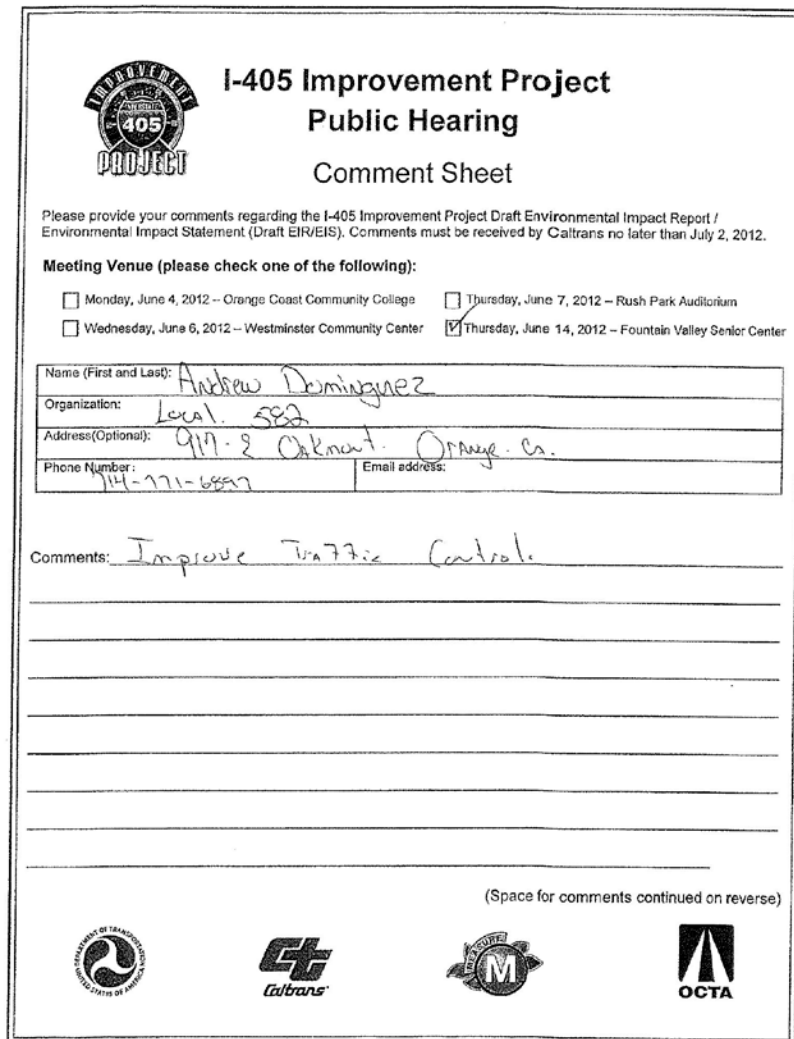 IMPROVEMENT
INTERSTATE
405
PROJECT
I-405 Improvement Project
Public Hearing
Comment Sheet
Please provide your comments regarding the I-405 Improvement Project Draft Environmental Impact Report /
Environmental Impact Statement (Draft EIR/EIS). Comments must be received by Caltrans no later than July 2, 2012.
Meeting Venue (please check one of the following):
Monday, June 4, 2012 – Orange Coast Community College
Thursday, June 7, 2012 – Rush Park Auditorium
Wednesday, June 6, 2012 – Westminster Community Center
Thursday, June 14, 2012 – Fountain Valley Senior Center
Name (First and Last): Andrew Dominguez
Organization: Local. 582
Address(Optional): Orange. Ca.
Phone Number:
Email address:
714-771-6897
Comments: Improve Traffic Control.
(Space for comments continued on reverse)
DEPARTMENT OF TRANSPORTATION
UNITED STATES OF AMERICA
Caltrans
MEASURE
M
OCTA